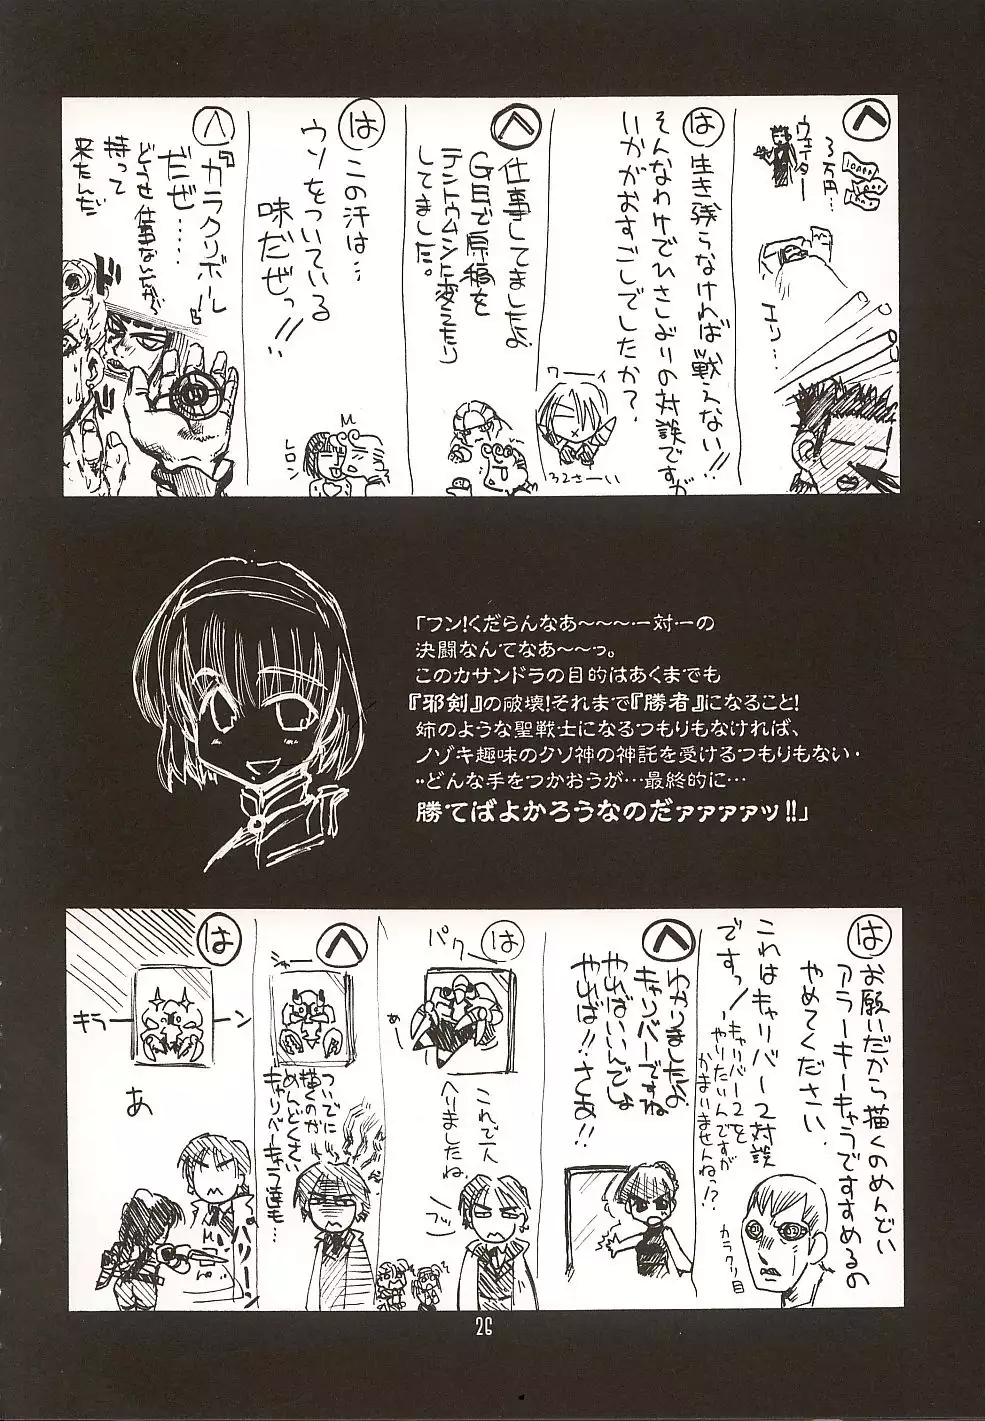 へ
3万円…
ウェイター
エリ…
は
生き残らなければ戦えない!!
そんなわけでひさしぶりの対談ですが
いかがおすごしでしたか?
ワーイ
へ
仕事してましたよ
GEで原稿を
テントウムシに変えたり
してました。
は
この汗は…
ウソをついている
味だぜっ!!
レロン
へ
『ガラクリボール』
だぜ……
どうせ仕事ないんだから
持って
来たんだ
ドド
「フン!くだらんなあ〜〜〜…一対一の
決闘なんてなあ〜〜っ。
このカサンドラの目的はあくまでも
『邪剣』の破壊!それまで『勝者』になること!
姉のような聖戦士になるつもりもなければ、
ノゾキ趣味のクソ神の神託を受けるつもりもない・
‥どんな手をつかおうが…最終的に…
勝てばよかろうなのだァァァァッ!!」
は
お願いだから描くのめんどい
アラーキーキャラですすめるの
やめてください
これはキャリバー2対談
ですっ!
キャリバー2を
やりたいんですが
かまいませんねっ!?
カラクリ目
へ
わかりましたよ
キャリバーですね
やればいいんでしょ
やれば!!さあ!!
は
パク
めっ
これで一人
へりましたね
フッ
へ
ジャー
ついでに
描くのが
めんどくさい
キャリバーキャラ達も…
は
キラーーン
あ
バリーン
26